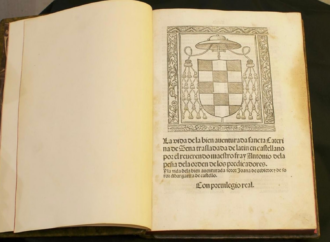 La vida de la bien aventurada sancta Cateri
na de Sena trasladada de latin en castellano
por el reuerendo maestro fray Antonio dela
peña dela orden de los predicadores.
Con preuilegio real.